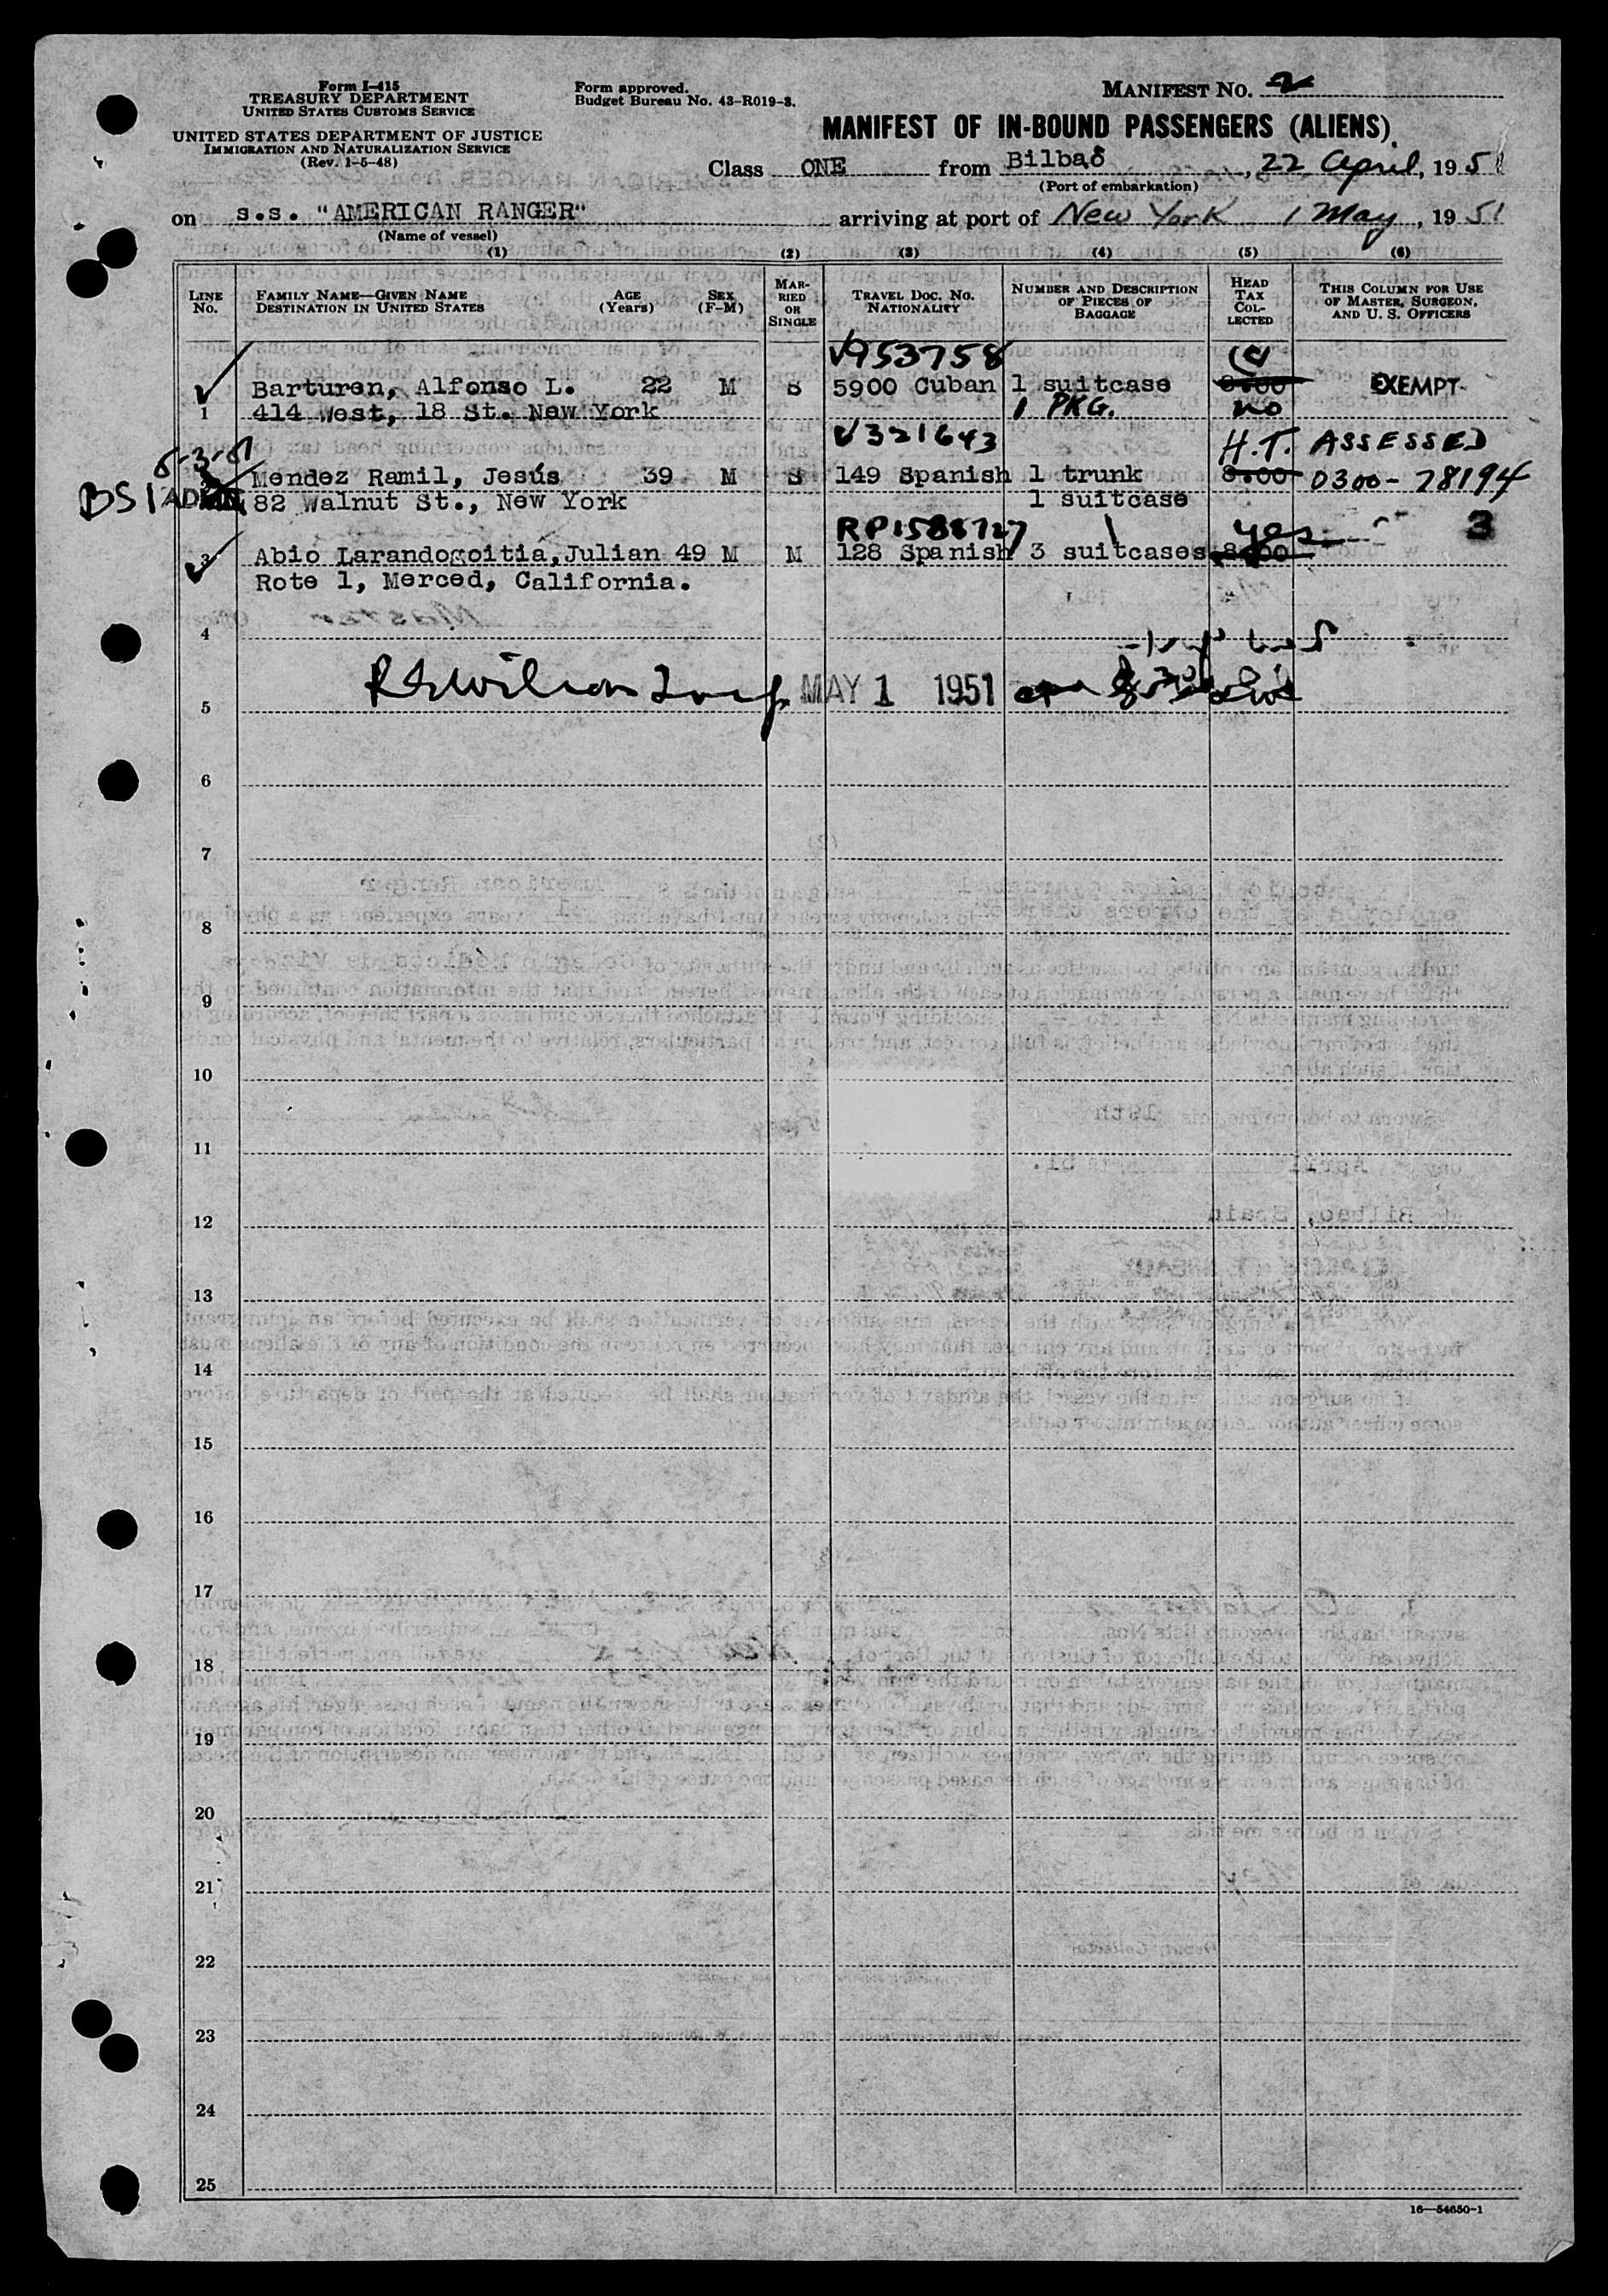 Form I-415
TREASURY DEPARTMENT
UNITED STATES CUSTOMS SERVICE
UNITED STATES DEPARTMENT OF JUSTICE
IMMIGRATION AND NATURALIZATION SERVICE
(Rev. 1-5-48)
Form approved.
Budget Bureau No. 43-R019-3.
MANIFEST NO. 2
MANIFEST OF IN-BOUND PASSENGERS (ALIENS)
Class ONE from Bilbao, 22 April, 1951
(Port of embarkation)
on s.s. "AMERICAN RANGER" arriving at port of New York 1 May, 1951
(Name of vessel)
(1) (2) (3) (4) (5) (6)
LINE No.
FAMILY NAME—GIVEN NAME
DESTINATION IN UNITED STATES
AGE (Years)
SEX (F-M)
MARRIED OR SINGLE
TRAVEL DOC. NO.
NATIONALITY
NUMBER AND DESCRIPTION OF PIECES OF BAGGAGE
HEAD TAX COLLECTED
THIS COLUMN FOR USE OF MASTER, SURGEON, AND U. S. OFFICERS
V953758
1 Barturen, Alfonso L. 22 M S 5900 Cuban 1 suitcase 8.00 EXEMPT
414 West, 18 St. New York 1 PKG. no
V321643 H.T. ASSESSED
5-3-51
Mendez Ramil, Jesús 39 M S 149 Spanish 1 trunk 8.00 0300-78194
BSI ADM 82 Walnut St., New York 1 suitcase
RP1588727 yes 3
3 Abio Larandogoitia, Julian 49 M M 128 Spanish 3 suitcases 8.00
Rote 1, Merced, California.
4
MAY 1 1951
5
6
7
8
9
10
11
12
13
14
15
16
17
18
19
20
21
22
23
24
25
16—54650-1